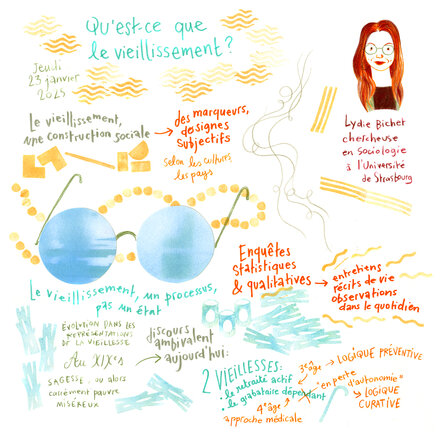 Qu'est-ce que
le vieillissement ?
Jeudi
23 janvier
2025
Lydie Bichet
chercheuse
en Sociologie
à l'Université
de Strasbourg
Le vieillissement,
une construction sociale
des marqueurs,
des signes
subjectifs
selon les cultures,
les pays
Enquêtes
statistiques
& qualitatives
entretiens
récits de vie
observations
dans le quotidien
Le vieillissement, un processus,
pas un état
ÉVOLUTION DANS LES
REPRÉSENTATIONS
DE LA VIEILLESSE
Au XIXe s
SAGESSE, ou alors
carrément pauvre
MISÉREUX
discours
ambivalent
aujourd'hui:
2 VIEILLESSES:
• le retraité actif
• le grabataire dépendant
3e âge
LOGIQUE PRÉVENTIVE
4e âge
"en perte
d'autonomie"
approche médicale
LOGIQUE
CURATIVE